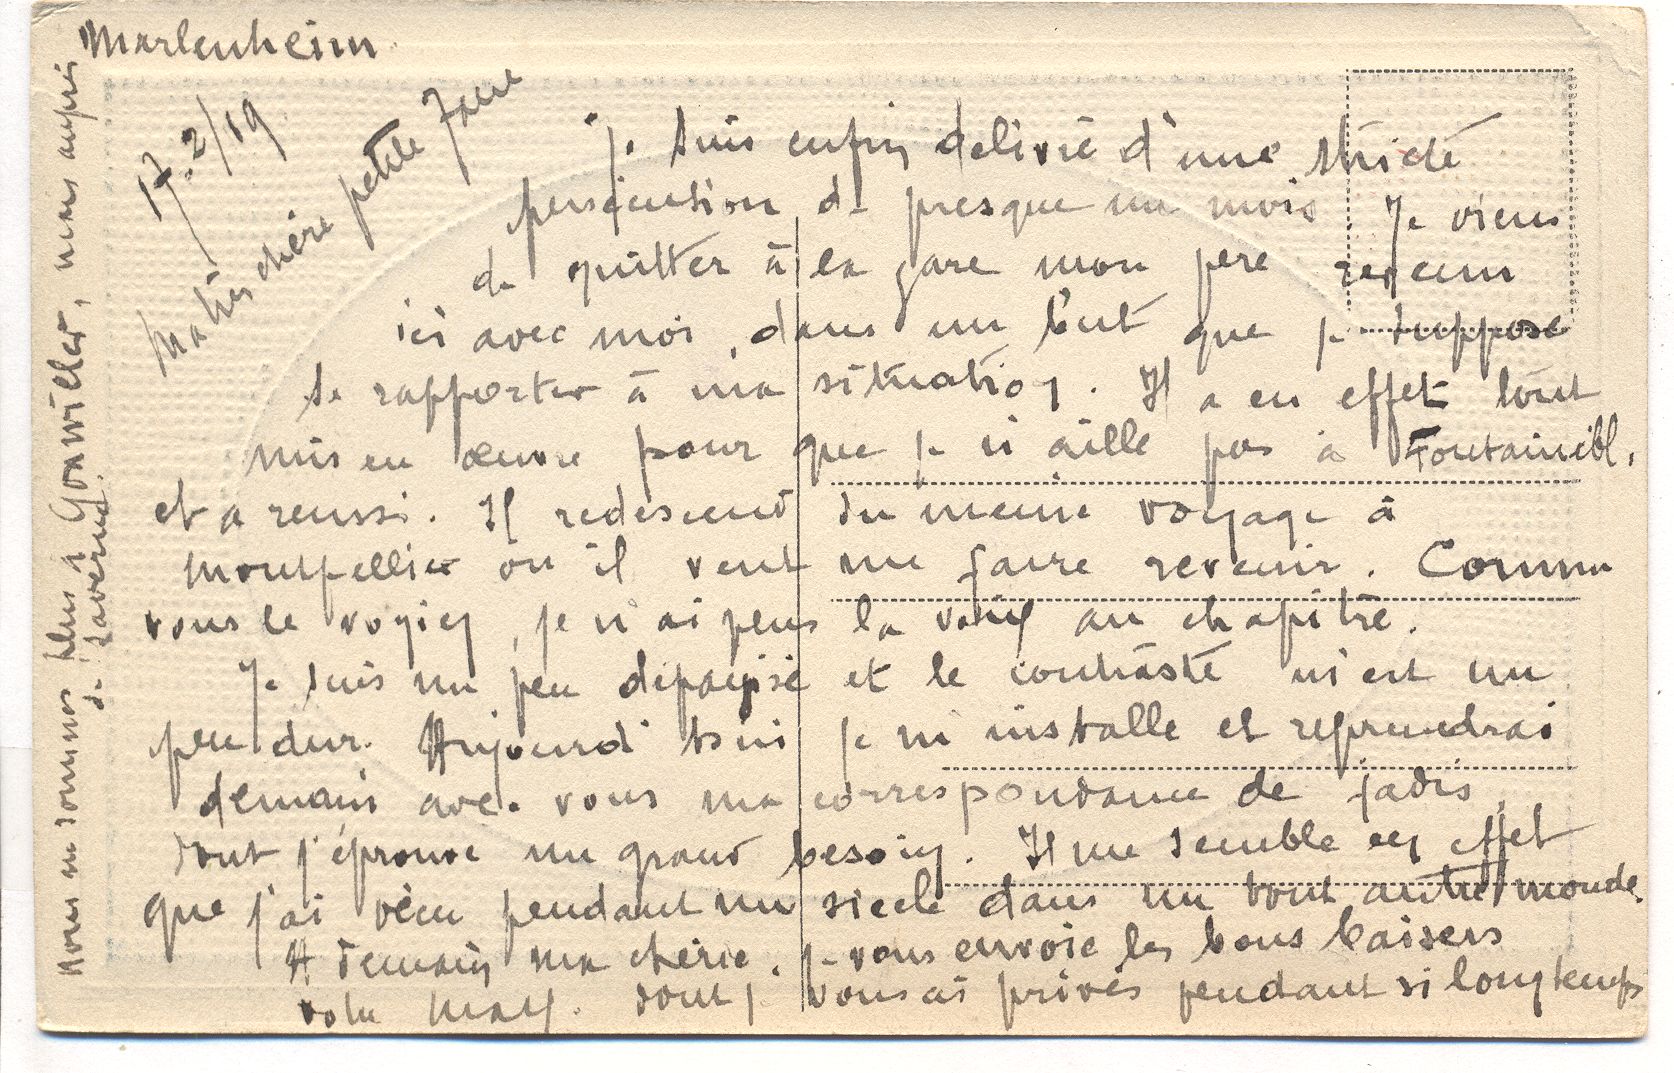 Marlenheim
17.2/19
Ma très chère petite Jane
je suis enfin delivré d'une stricte
persécution de presque un mois Je viens
de quitter à la gare mon pere revenu
ici avec moi, dans un but que je suppose
se rapporter à ma situation. Il a en effet tout
mis en œuvre pour que je n'aille pas à Fontainebl.
et a reussi. Il redescend du meme voyage à
Montpellier ou il veut me faire revenir. Comme
vous le voyiez, je n'ai plus la voix au chapitre.
Je suis un peu dépaysé et le contraste m'est un
peu dur. Aujourd'hui je m'installe et reprendrai
demain avec vous ma correspondance de jadis,
dont j'éprouve un grand besoin. Il me semble en effet
que j'ai vécu pendant un siecle dans un tout autre monde.
A demain ma chérie. je vous envoie les bons baisers
dont je vous ai privés pendant si longtemps
votre
Nous ne sommes plus a, nous aupres
de Saverne.